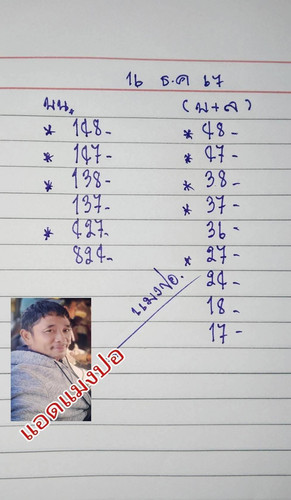 16 ธ.ค 67
บน.
* 148-
* 147-
* 138-
137-
* 427-
824-
(บ+ล)
* 48-
* 47-
* 38-
* 37-
36-
* 27-
24-
18-
17-
แมงปอ.
แอดแมงปอ